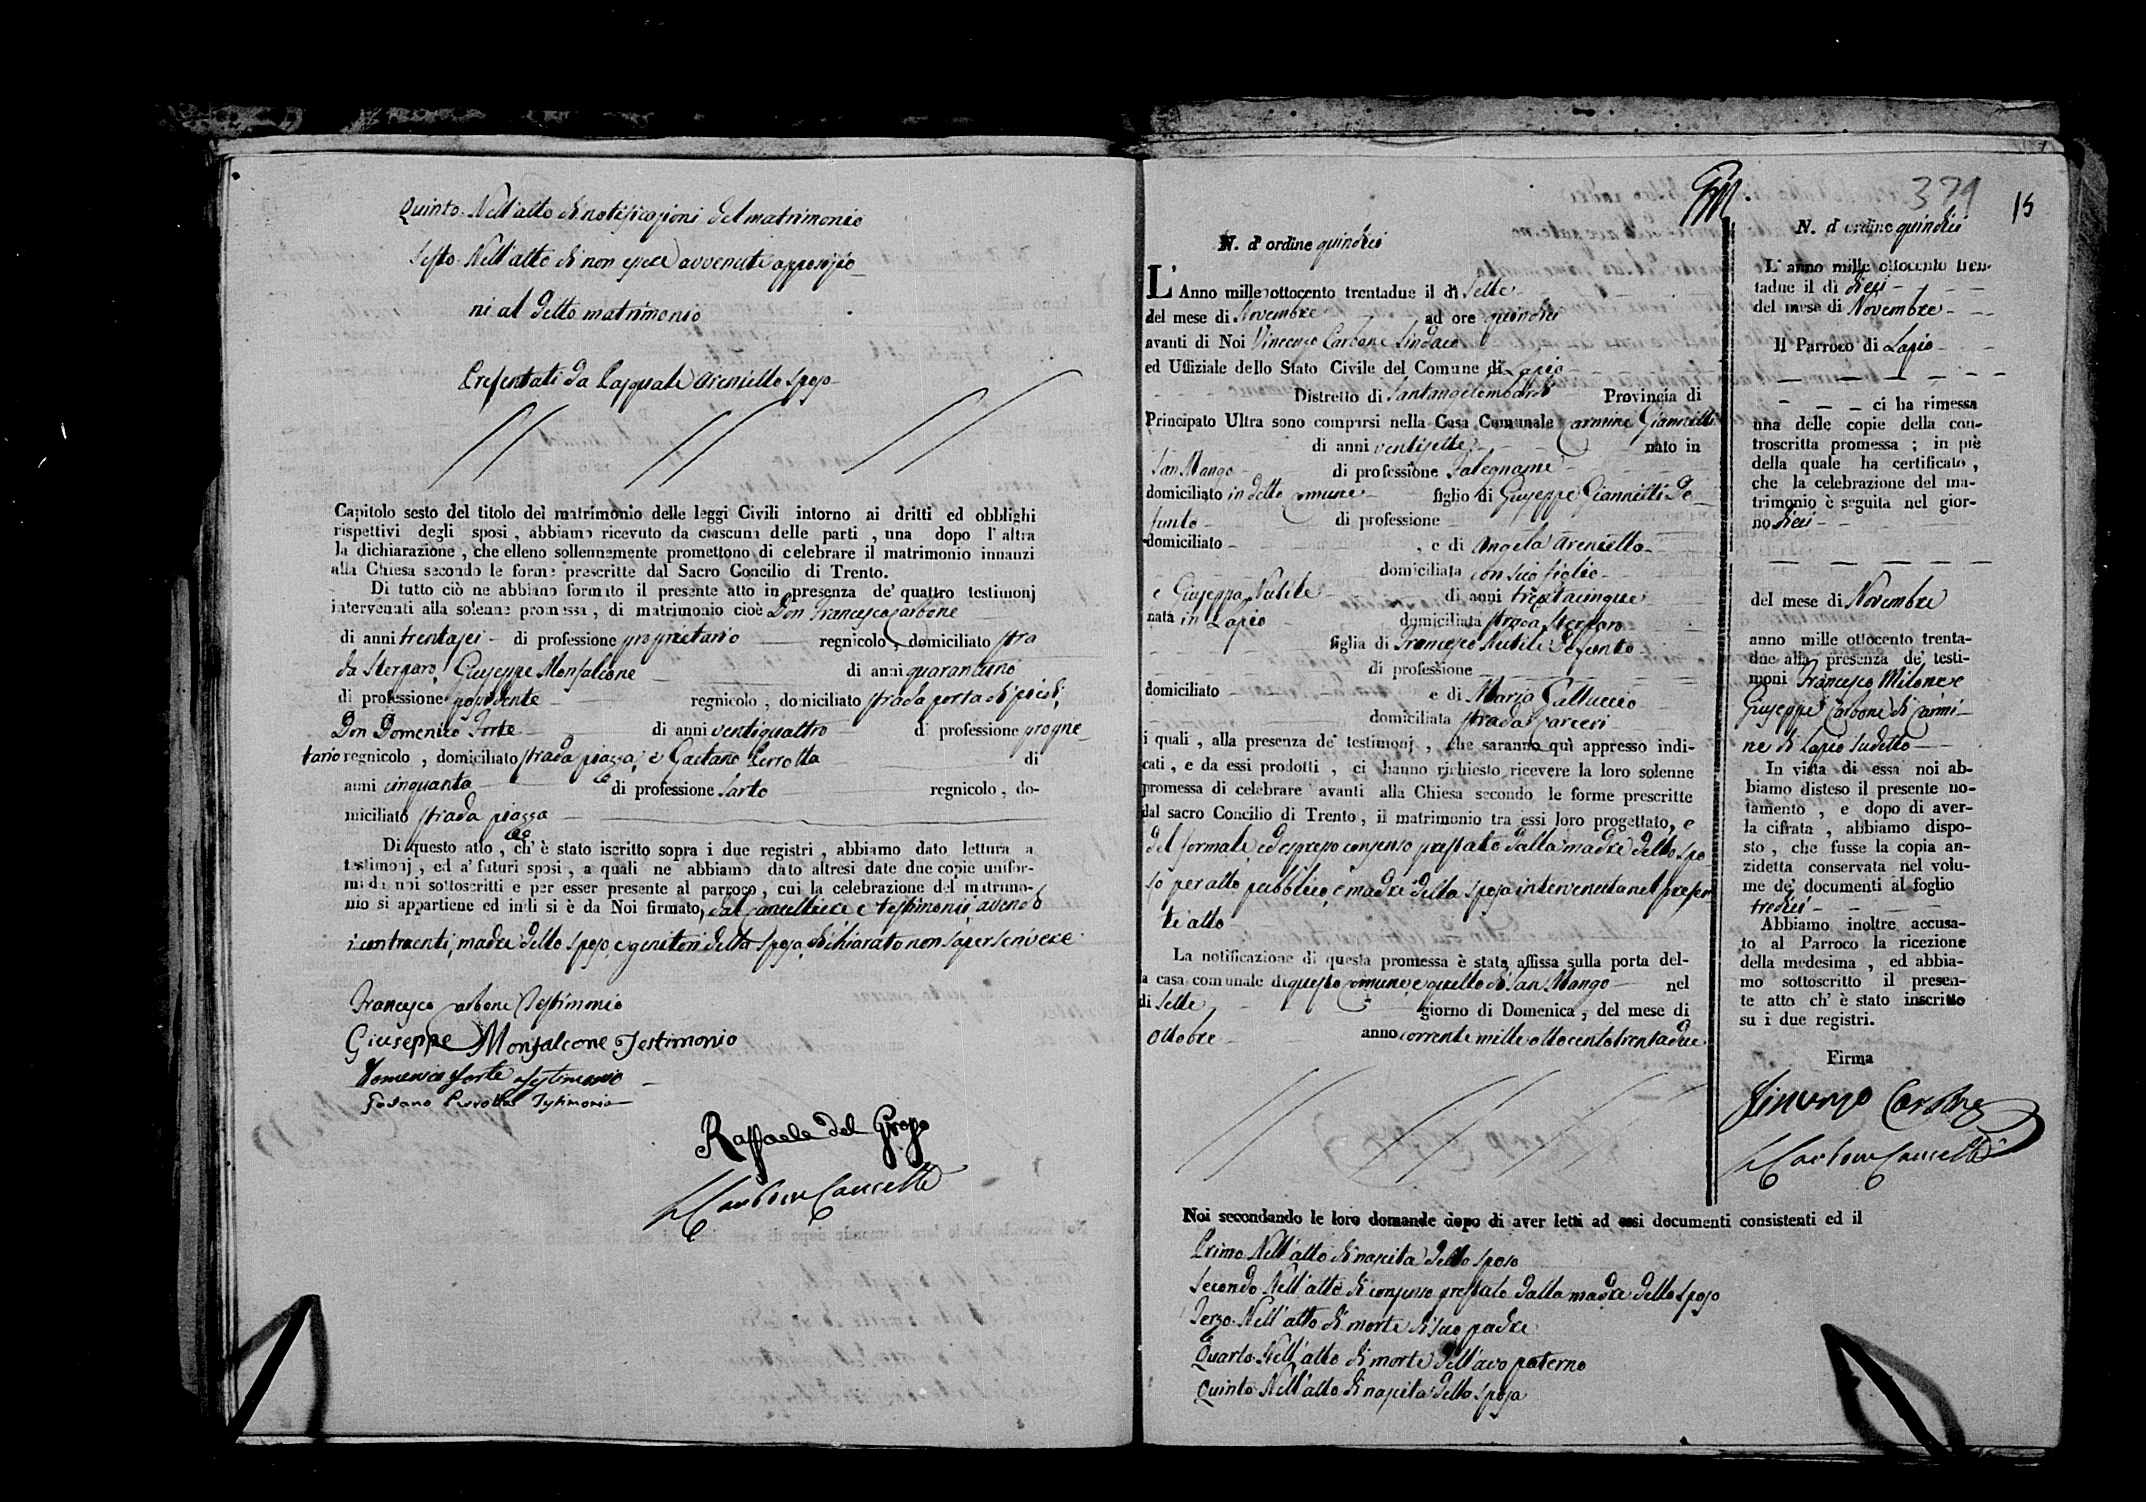 Quinto. Nell'atto di notificazioni del matrimonio
Sesto. Nell'atto di non essere avvenute opposizio
ni al detto matrimonio
Presentati da Pasquale Areniello sposo
Capitolo sesto del titolo del matrimonio delle leggi Civili intorno ai dritti ed obblighi
rispettivi degli sposi , abbiamo ricevuto da ciascuna delle parti , una dopo l' altra
la dichiarazione , che elleno sollennemente promettono di celebrare il matrimonio innanzi
alla Chiesa secondo le forme prescritte dal Sacro Concilio di Trento.
Di tutto ciò ne abbiamo formato il presente atto in presenza de' quattro testimonj
intervenuti alla solenne promessa , di matrimonio cioè Don Francesco Carbone
di anni trentasei di professione proprietario regnicolo , domiciliato stra
da Sterparo, Giuseppe Monfalcone di anni quarantuno
di professione possidente regnicolo , domiciliato strada porta di piedi,
Don Domenico Forte di anni ventiquattro di professione proprie
tario regnicolo , domiciliato strada piazza, e Gaetano Perrotta di
anni cinquanta di professione Sarto regnicolo , do-
miciliato strada piazza
Di questo atto , ch' è stato iscritto sopra i due registri , abbiamo dato lettura a
testimonj , ed a' futuri sposi , a quali ne abbiamo dato altresì date due copie unifor-
mi da noi sottoscritti e per esser presente al parroco , cui la celebrazione del matrimo-
nio si appartiene ed indi si è da Noi firmato, dal Cancelliere e testimonii, avendo
i contraenti, madre dello sposo, e genitori della sposa, dichiarato non saper scrivere
Francesco Carbone Testimonio
Giuseppe Monfalcone Testimonio
Domenico Forte Testimonio
Gaetano Perrotta Testimonio
Raffaele del Grosso
Carbone Cancelle
379
15
N. d' ordine quindici
L' Anno mille ottocento trentadue il dì Sette
del mese di Novembre ad ore quindici
avanti di Noi Vincenzo Carbone Sindaco
ed Uffiziale dello Stato Civile del Comune di Lapio
Distretto di Santangelombardi Provincia di
Principato Ultra sono comparsi nella Casa Comunale Carmine Giannitti
di anni ventisette nato in
San Mango di professione Falegname
domiciliato in detto Comune figlio di Giuseppe Giannitti De
funto di professione
domiciliato , e di Angela Areniello
domiciliata con suo figlio
e Giuseppa Nutile di anni trentacinque
nata in Lapio domiciliata strada Sterparo
figlia di Francesco Nutile Defunto
di professione
domiciliato e di Maria Galluccio
domiciliata strada Carceri
i quali , alla presenza de' testimonj , che saranno quì appresso indi-
cati , e da essi prodotti , ci hanno richiesto ricevere la loro solenne
promessa di celebrare avanti alla Chiesa secondo le forme prescritte
dal sacro Concilio di Trento , il matrimonio tra essi loro progettato, e
del formale, ed espresso consenso prestato dalla madre dello spo
so per atto pubblico, e madre della sposa intervenuta nel presen
te atto
La notificazione di questa promessa è stata affissa sulla porta del-
a casa comunale di questo Comune, e quello di San Mango nel
di Sette giorno di Domenica , del mese di
Ottobre anno corrente mille ottocento trentadue
Noi secondando le loro domande dopo di aver letti ad essi documenti consistenti ed il
Primo. Nell'atto di nascita dello sposo
Secondo. Nell'atto di consenso prestato dalla madre dello sposo
Terzo. Nell'atto di morte di suo padre
Quarto. Nell'atto di morte dell'avo paterno
Quinto. Nell'atto di nascita della sposa
N. d' ordine quindici
L' anno mille ottocento tren-
tadue il di dieci
del mese di Novembre
Il Parroco di Lapio
ci ha rimessa
una delle copie della con-
troscritta promessa ; in piè
della quale ha certificato ,
che la celebrazione del ma-
trimonio è seguita nel gior-
no dieci
del mese di Novembre
anno mille ottocento trenta-
due alla presenza de' testi-
moni Francesco Milone e
Giuseppe Carbone di Carmi-
ne di Lapio sudetto
In vista di essa noi ab-
biamo disteso il presente no-
tamento , e dopo di aver-
la cifrata , abbiamo dispo-
sto , che fusse la copia an-
zidetta conservata nel volu-
me de' documenti al foglio
tredici
Abbiamo inoltre accusa-
to al Parroco la ricezione
della medesima , ed abbia-
mo sottoscritto il presen-
te atto ch' è stato inscritto
su i due registri.
Firma
Vincenzo Carbone
Carbone Cancelle